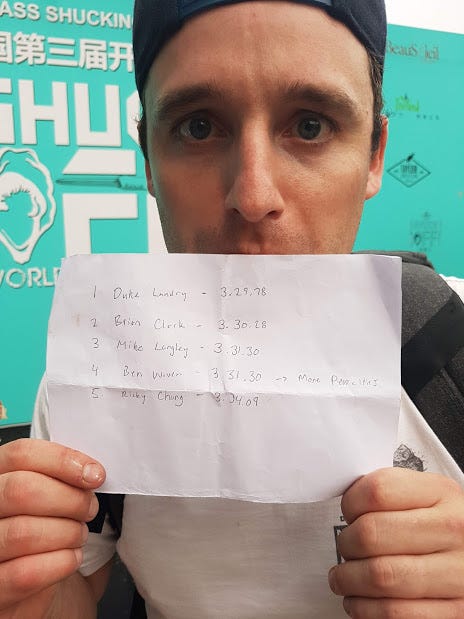 ASS SHUCKING
国第三届开
SHUC
OFF
WORLD
BeauSoleil
1 Duke Landry - 3.29.78
2 Brian Clark - 3.30.28
3 Mike Langley - 3.31.30
4 Ben Waver - 3.31.30 → More Penalties
5. Ricky Chung - 3.34.09